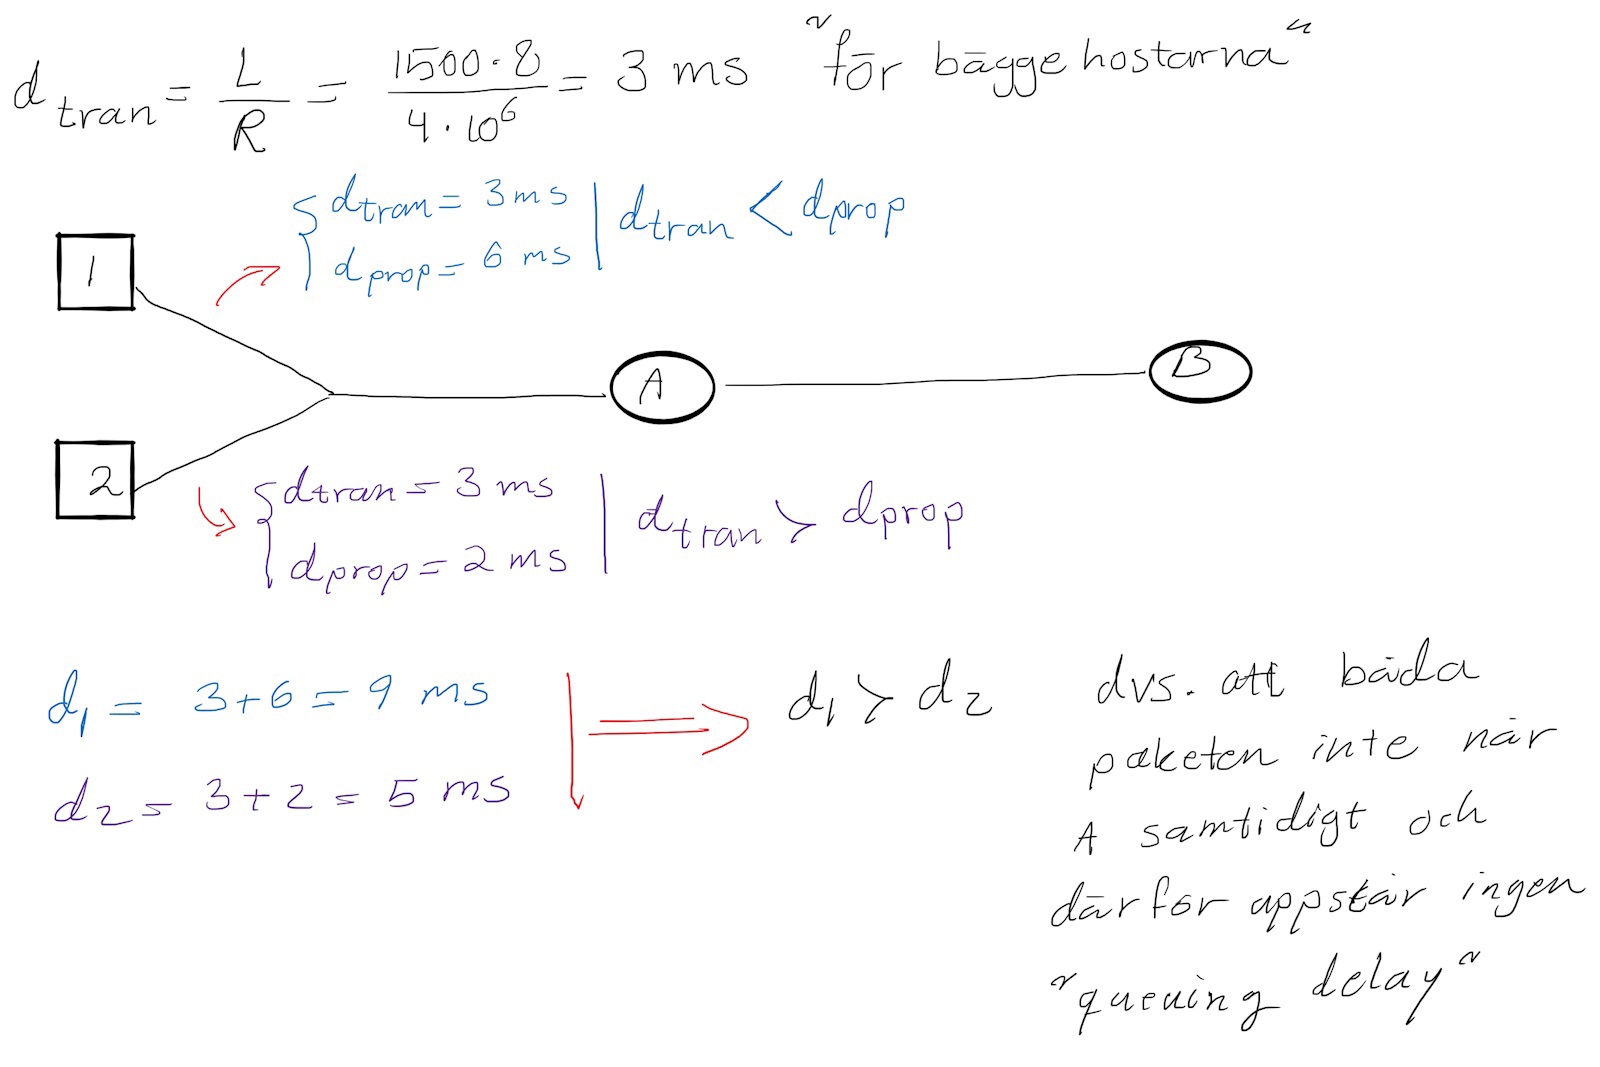 d tran = L/R = 1500·8 / 4·10⁶ = 3 ms "för bägge hostarna"
{ dtran = 3ms | dtran < dprop
dprop = 6 ms
1
A
B
2
{ dtran = 3 ms | dtran > dprop
dprop = 2 ms
d₁ = 3+6 = 9 ms
d₂ = 3+2 = 5 ms
⇒ d₁ > d₂
dvs. att båda
paketen inte når
A samtidigt och
därför uppstår ingen
"queuing delay"